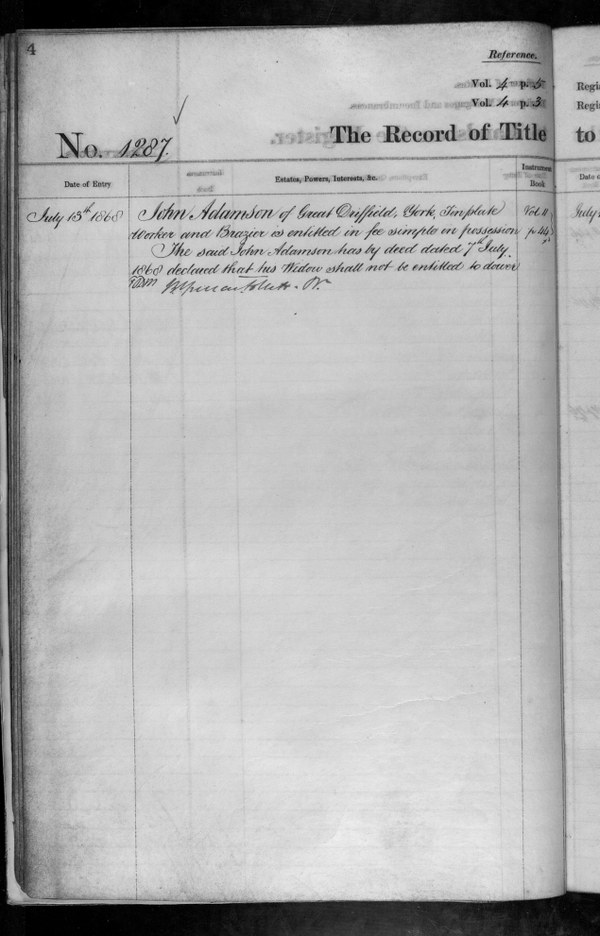 4
Reference.
Vol. 4 p. 5
Vol. 4 p. 3
No. 1287.
The Record of Title
to
Date of Entry
Estates, Powers, Interests, &c.
Instrument Book
July 13th 1868
John Adamson of Great Driffield, York, Tinplate
Vol. 4
Worker and Brazier is entitled in fee simple in possession
p. 44
The said John Adamson has by deed dated 7th July
1868 declared that his Widow shall not be entitled to dower